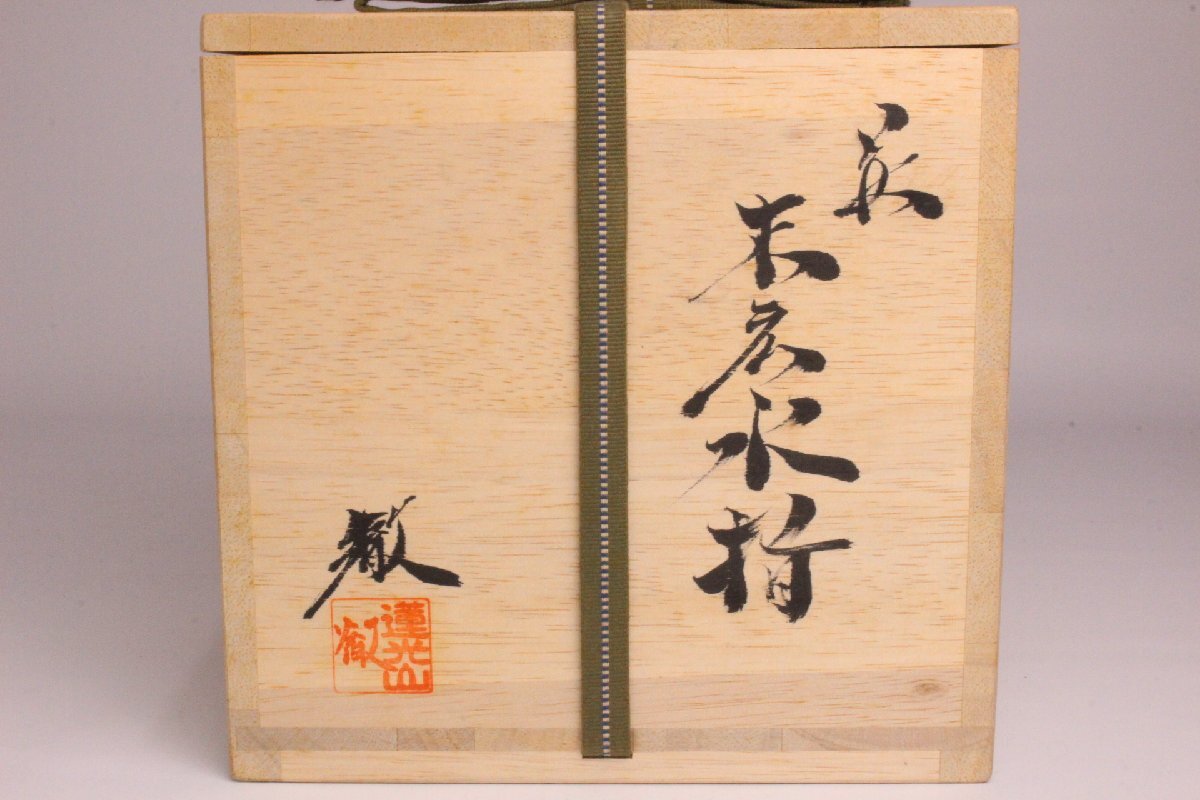 末広水指
徹
蓮光山
徹